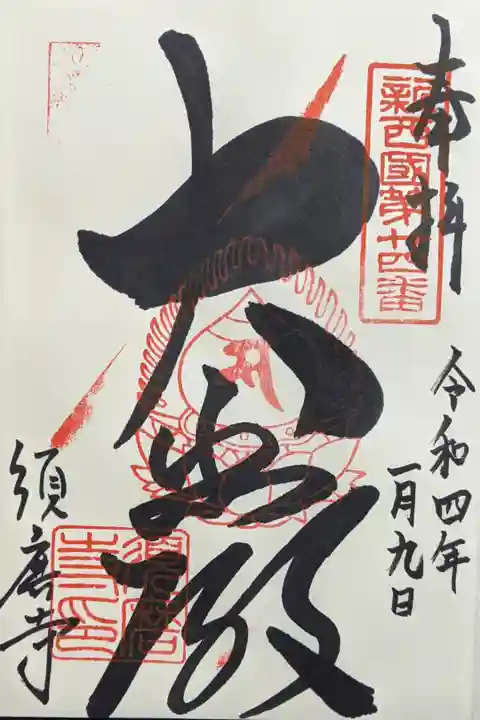 奉拝
新西國第廿四番
令和四年
一月九日
大悲殿
須磨寺
須磨寺印